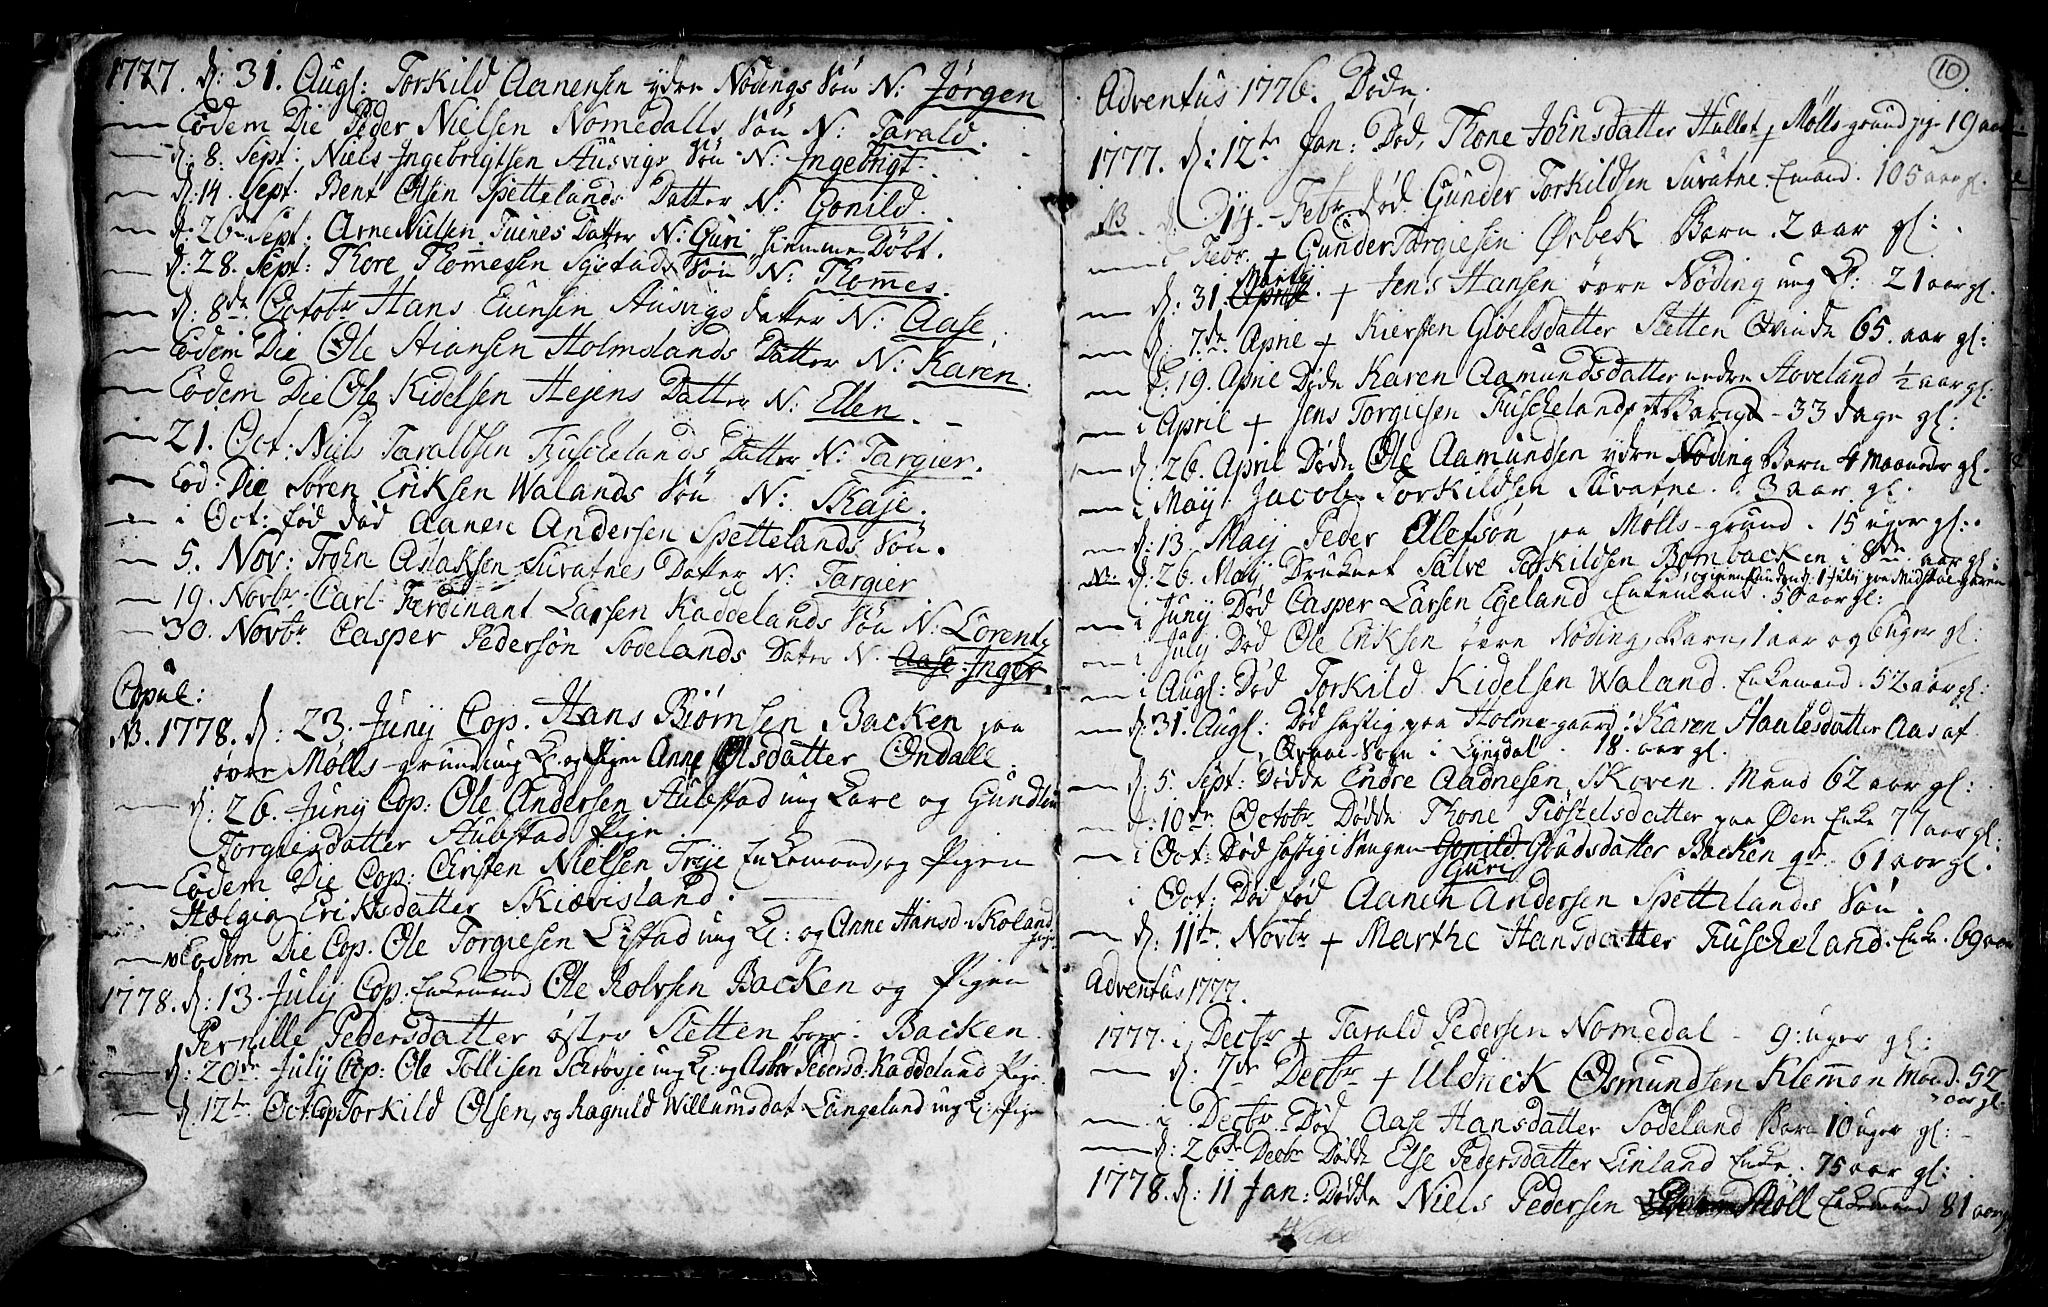 1777. d: 31. Augs: Torkild Aanensen ydre Nödings Sön N: Jörgen
Eodem Die Peder Nielsen Nomedalls Sön N: Tarald.
d: 8. Sept: Niels Ingebrigtsen Ausvigs Sön N: Ingebrigt.
d: 14. Sept. Bent Olsen Spettelands Datter N: Gonild.
d: 26de Sept: Arne Nielsen Tuenes Datter N: Guri, hiemme Döbt.
d: 28. Sept: Thore Thomesen Sÿstads Sön N: Thommes.
d: 8de Octobr Hans Evensen Ausvigs datter N: Aase
Eodem Die Ole Stiansen Holmslands Datter N: Karen.
Eodem Die Ole Kidelsen Hejens Datter N: Ellen.
21. Oct: Niels Taraldsen Fuschelands Datter N: Targier.
Eod: Die Sören Eriksen Walands Sön N: Skaje.
i Oct: fød død Aanen Andersen Spettelands Sön.
5. Nov: John Aslaksen Suvatnes Datter N: Targier
19. Novbr Carl Ferdinant Larsen Kaddelands Sön N: Lorentz
30. Novbr Casper Pedersøn Sodelands Datter N. Aase Inger
Copul:
NB. 1778. d: 23. Junij Cop. Hans Biørnsen Backen paa
övre Mölls-grund ung K: og Pigen Anne Olsdatter Øndalle.
d: 26. Junij Cop: Ole Andersen Stubstad ung Karl og Gundlev
Torgiersdatter Stubstad Pige.
Eodem Die Cop: Christen Nielsen Trÿe Enkemand, og Pigen
Hælgin Eriksdatter Skiævisland.
Eodem Die Cop. Ole Torgiesen Listad ung K: og Anne Hansd. Skoland
Pige
1778. d: 13. Julij Cop: Enkemand Ole Rolvsen Backen og Pigen
Pernille Pedersdatter østre Sletten boer: Backen.
d: 20de Julij Cop: Ole Tollisen Schrövje ung K: og Asbor Pedersd: Kaddeland Pige.
d. 12te Oct: Cop Torkild Olsen, og Ragnild Willumsdat Langeland ung K: Pige
10
Adventus 1776. Døde,
1777. d: 12te Jan: Død, Thone Johnsdatter Hullet Mölls-grund pige 19 aar
NB. d. 14. Febr død Gunder Torkildsen Suvatne Emand. 105 aar gl.
i Febr. + Gunder Torgiesen Ørbek Barn. 2 aar gl:
Martij
d: 31. April. + Jens Hansen övre Nöding ung K: 21 aar gl.
d: 7de April + Kiersten Gioelsdatter Sletten Qvinde 65. aar gl:
d: 19. April Døde Karen Aamundsdatter nedre Hoveland ½ aar gl:
i April + Jens Torgiesen Fuschelands, et Barn 33 dage gl:
d: 26. April Døde Ole Aamundsen ydre Nöding Barn 4 Maaneder gl.
i Maij Jacob Torkildsen Suvatne. 3 aar gl.
d: 13. Maij Peder Ellefsøn paa Mölls-grund. 15 uger gl:
NB. d: 26. Maij Druknet Salve Torkildsen Bombacken i 8de aar gl:
igien funden d: 1 Julij paa Midtbøe garen
i Junij Død Casper Larsen Egeland Enkemand. 50 aar gl:
i Julij Død Ole Eriksen övre Nöding, Barn, 1 aar og 6 uger gl:
i Augs: Død Torkild Kidelsen Waland. Enkemand. 52 aar gl:
d: 31. Augs: Død hastig paa Holme-gaard: Karen Staalesdatter Aas af
Qvaas Sogn i Lyngdal. 18. aar gl.
d: 5 Sept: Dødde Endre Aadnesen Skoven. Mand 62 aar gl:
d: 10de Octobr Dødde Thone Tiøstelsdatter paa Øen Enke 77 aar gl:
i Oct: Død hastig i Sengen Gonild Guri Gundsdatter Backen gr. 61 aar gl.
i Oct: Død fød Aanen Andersen Spettelands Sön.
d: 11te Novbr + Marthe Hansdatter Fuscheland. Enke. 69 aar
Adventus 1777.
1777. i Decbr + Tarald Pedersen Nomedal - 9: uger gl:
d. 7de Decbr + Uldrick Osmundsen Klemmon Mand. 52
aar gl.
i Decbr. Død Aase Hansdatter Sodeland Barn 10 uger gl:
d: 26de Decbr Dødde Else Pedersdatter Linland Enke. 75 aar gl:
1778. d: 11 Jan: Dødde Niels Pedersen Möll Enkemand 81 aar g